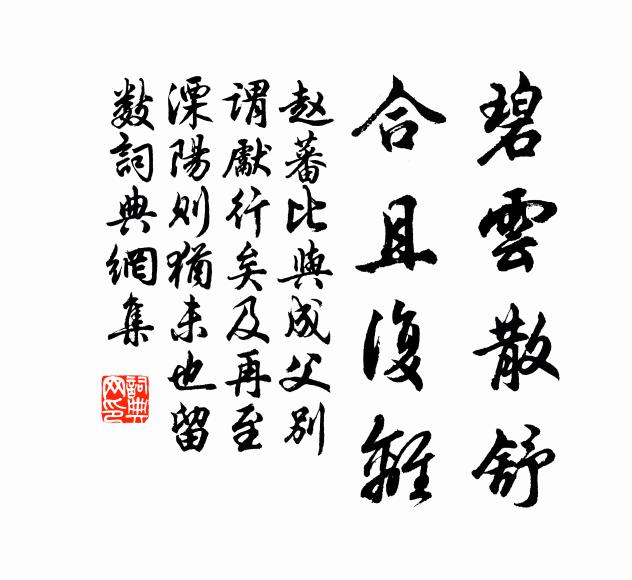 碧雲散舒
合且復離
赵蕃比與成父别
谓獻行矣及再至
溧陽则猶未也留
数詞典網集
詞典网印